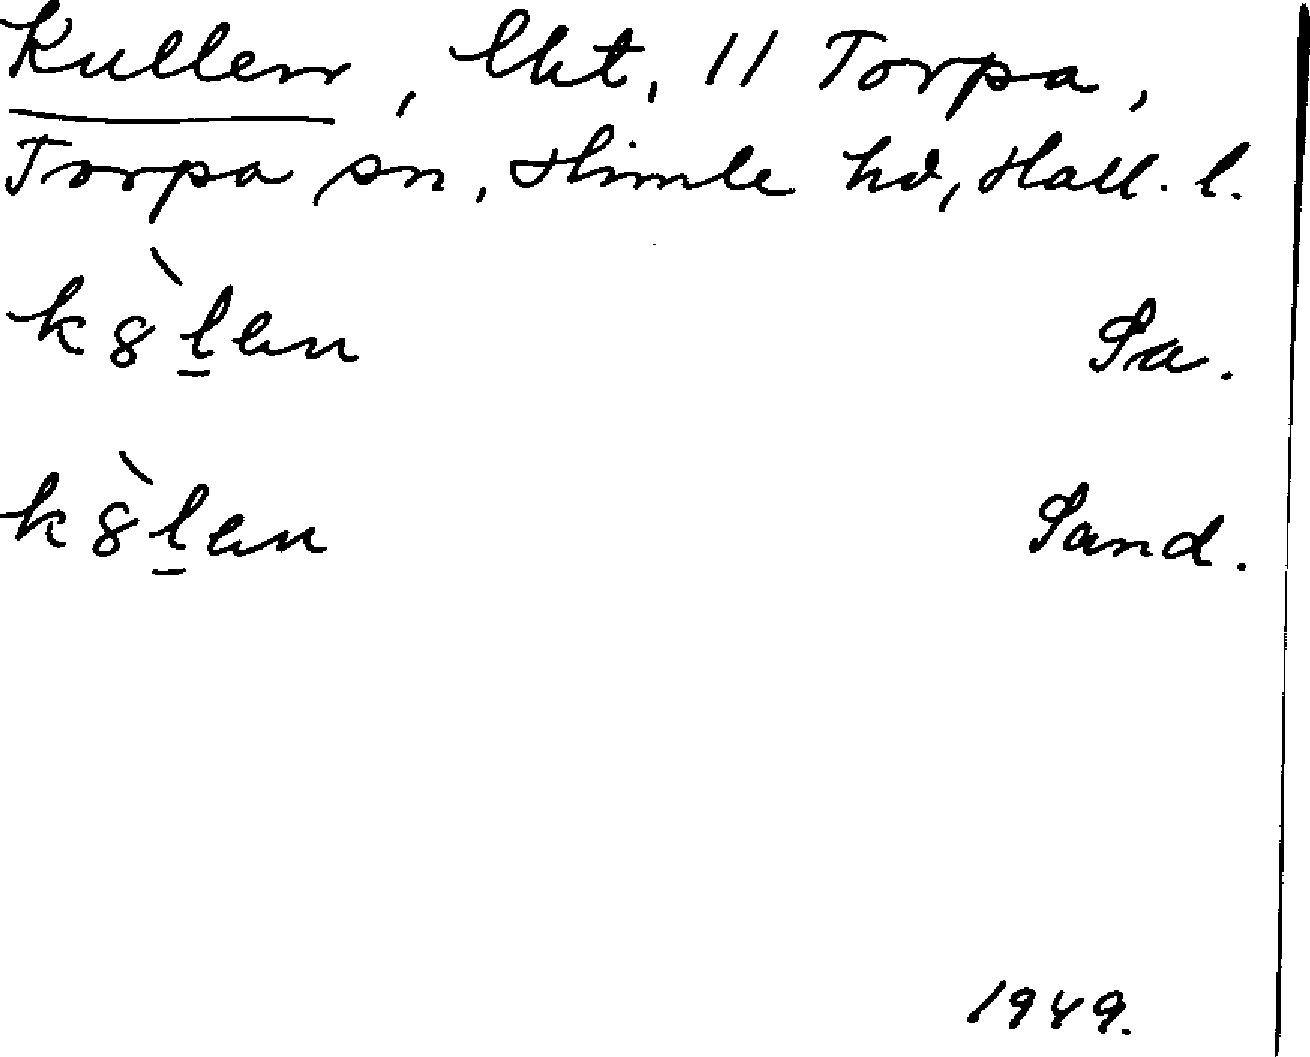 Kullen, lht, 11 Torpa,
Torpa sn, Himle hd, Hall. l.
k8̀l̠ən Sa.
k8̀l̠ən Sand.
1949.